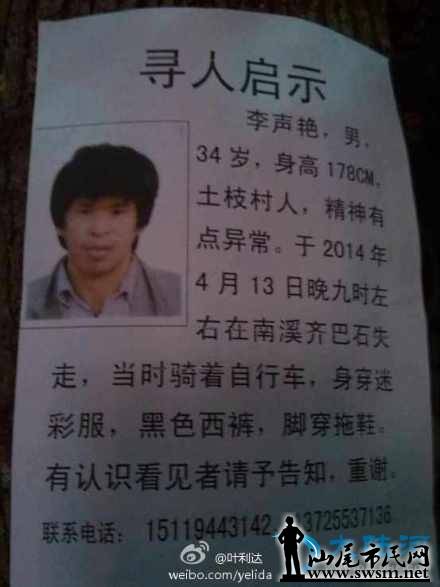 寻人启示
李声艳，男，
34岁，身高178CM，
土枝村人，精神有
点异常。于2014年
4月13日晚九时左
右在南溪齐巴石失
走，当时骑着自行车，身穿迷
彩服，黑色西裤，脚穿拖鞋。
有认识看见者请予告知，重谢。
联系电话：15119443142 13725537136
@叶利达
weibo.com/yelida
汕尾市民网
www.swsm.net